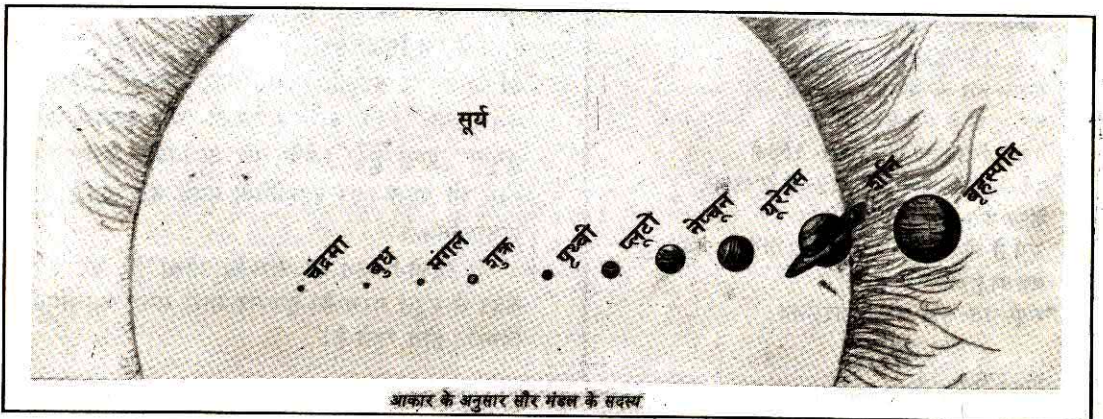 सूर्य
चंद्रमा
बुध
मंगल
शुक्र
पृथ्वी
प्लूटो
नेप्च्यून
यूरेनस
शनि
बृहस्पति
आकार के अनुसार सौर मंडल के सदस्य